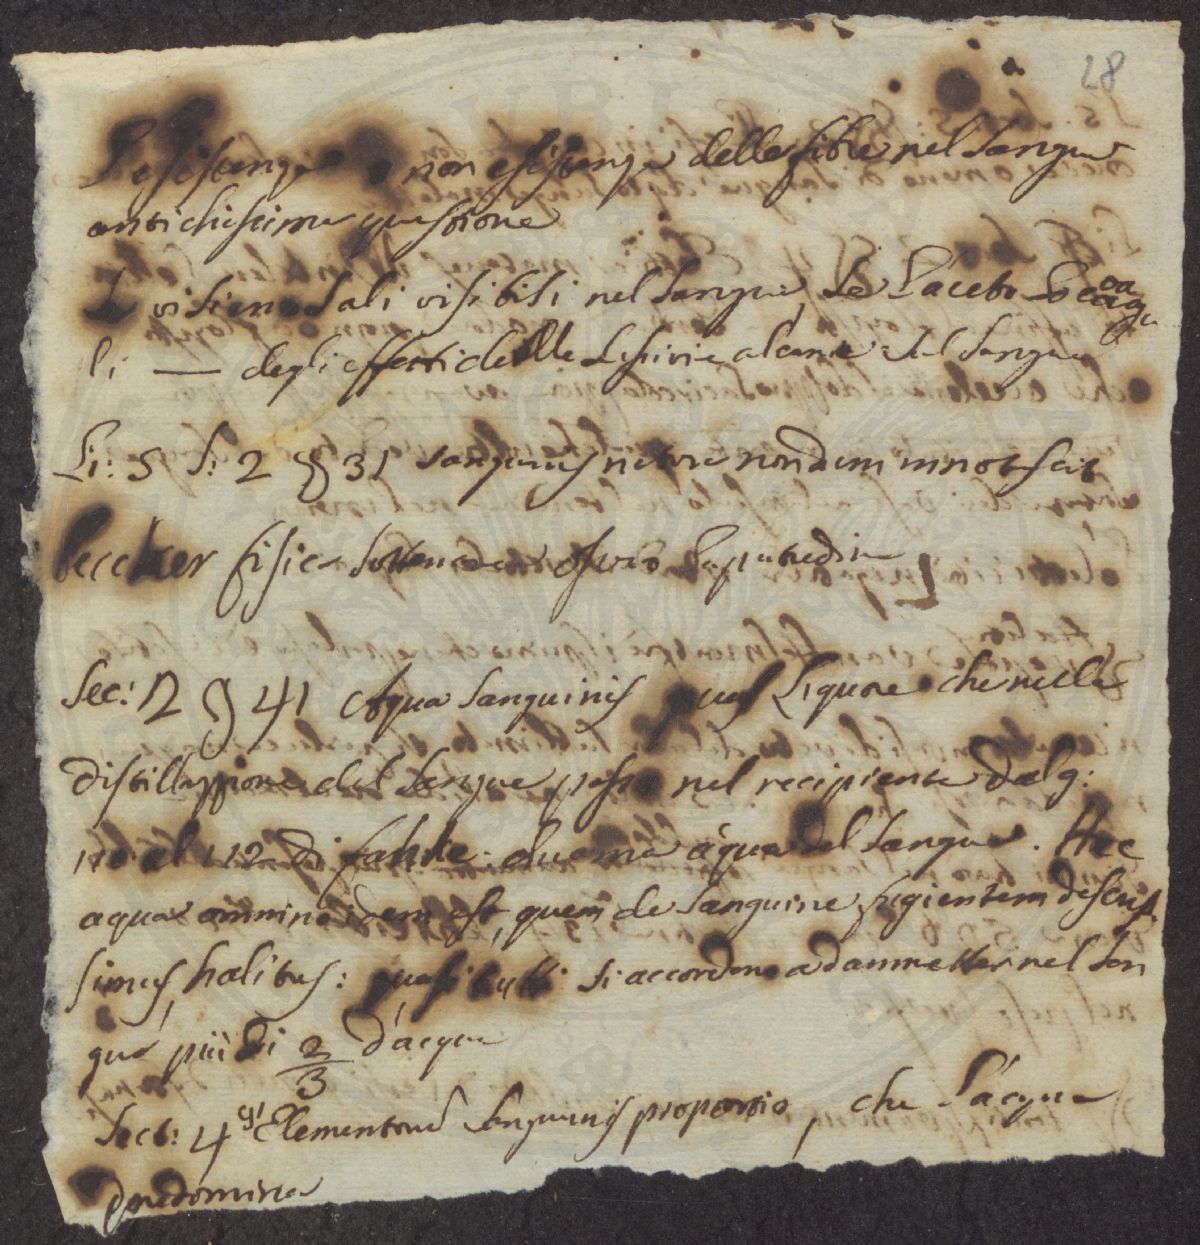 28
L'esistenza o non esistenza delle fibre nel Sangue
antichissima questione
vi sieno Sali visibili nel Sangue
li — degli effetti delle Lisivie alcune sul Sangue
Li: 5 S: 2 § 31 sanguinis natura nondum innotscit
beccker fisica sotteranea
Sec: 2 § 41 Aqua Sanguinis quel Liquore che nella
distillazzione del Sangue passa nel recipiente dal g:
al 112 di acqua del Sangue. Hec
aqua omnino idem est, quem de Sanguine fugientem descrip
simus, halitus: quasi tutti si accordono ad ammetter nel San
gue più di 2/3 d'acqua
Sect: 4 Elementorum Sanguinis proportio, che l'acqua
predomina